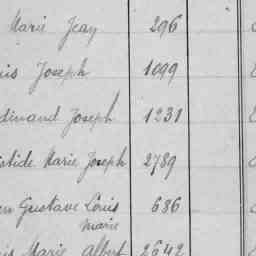 Marie Jean 296
is Joseph 1099
dinand Joseph 1231
istide Marie Joseph 2789
en Gustave Louis 636
Marie
is Marie Albert 2642